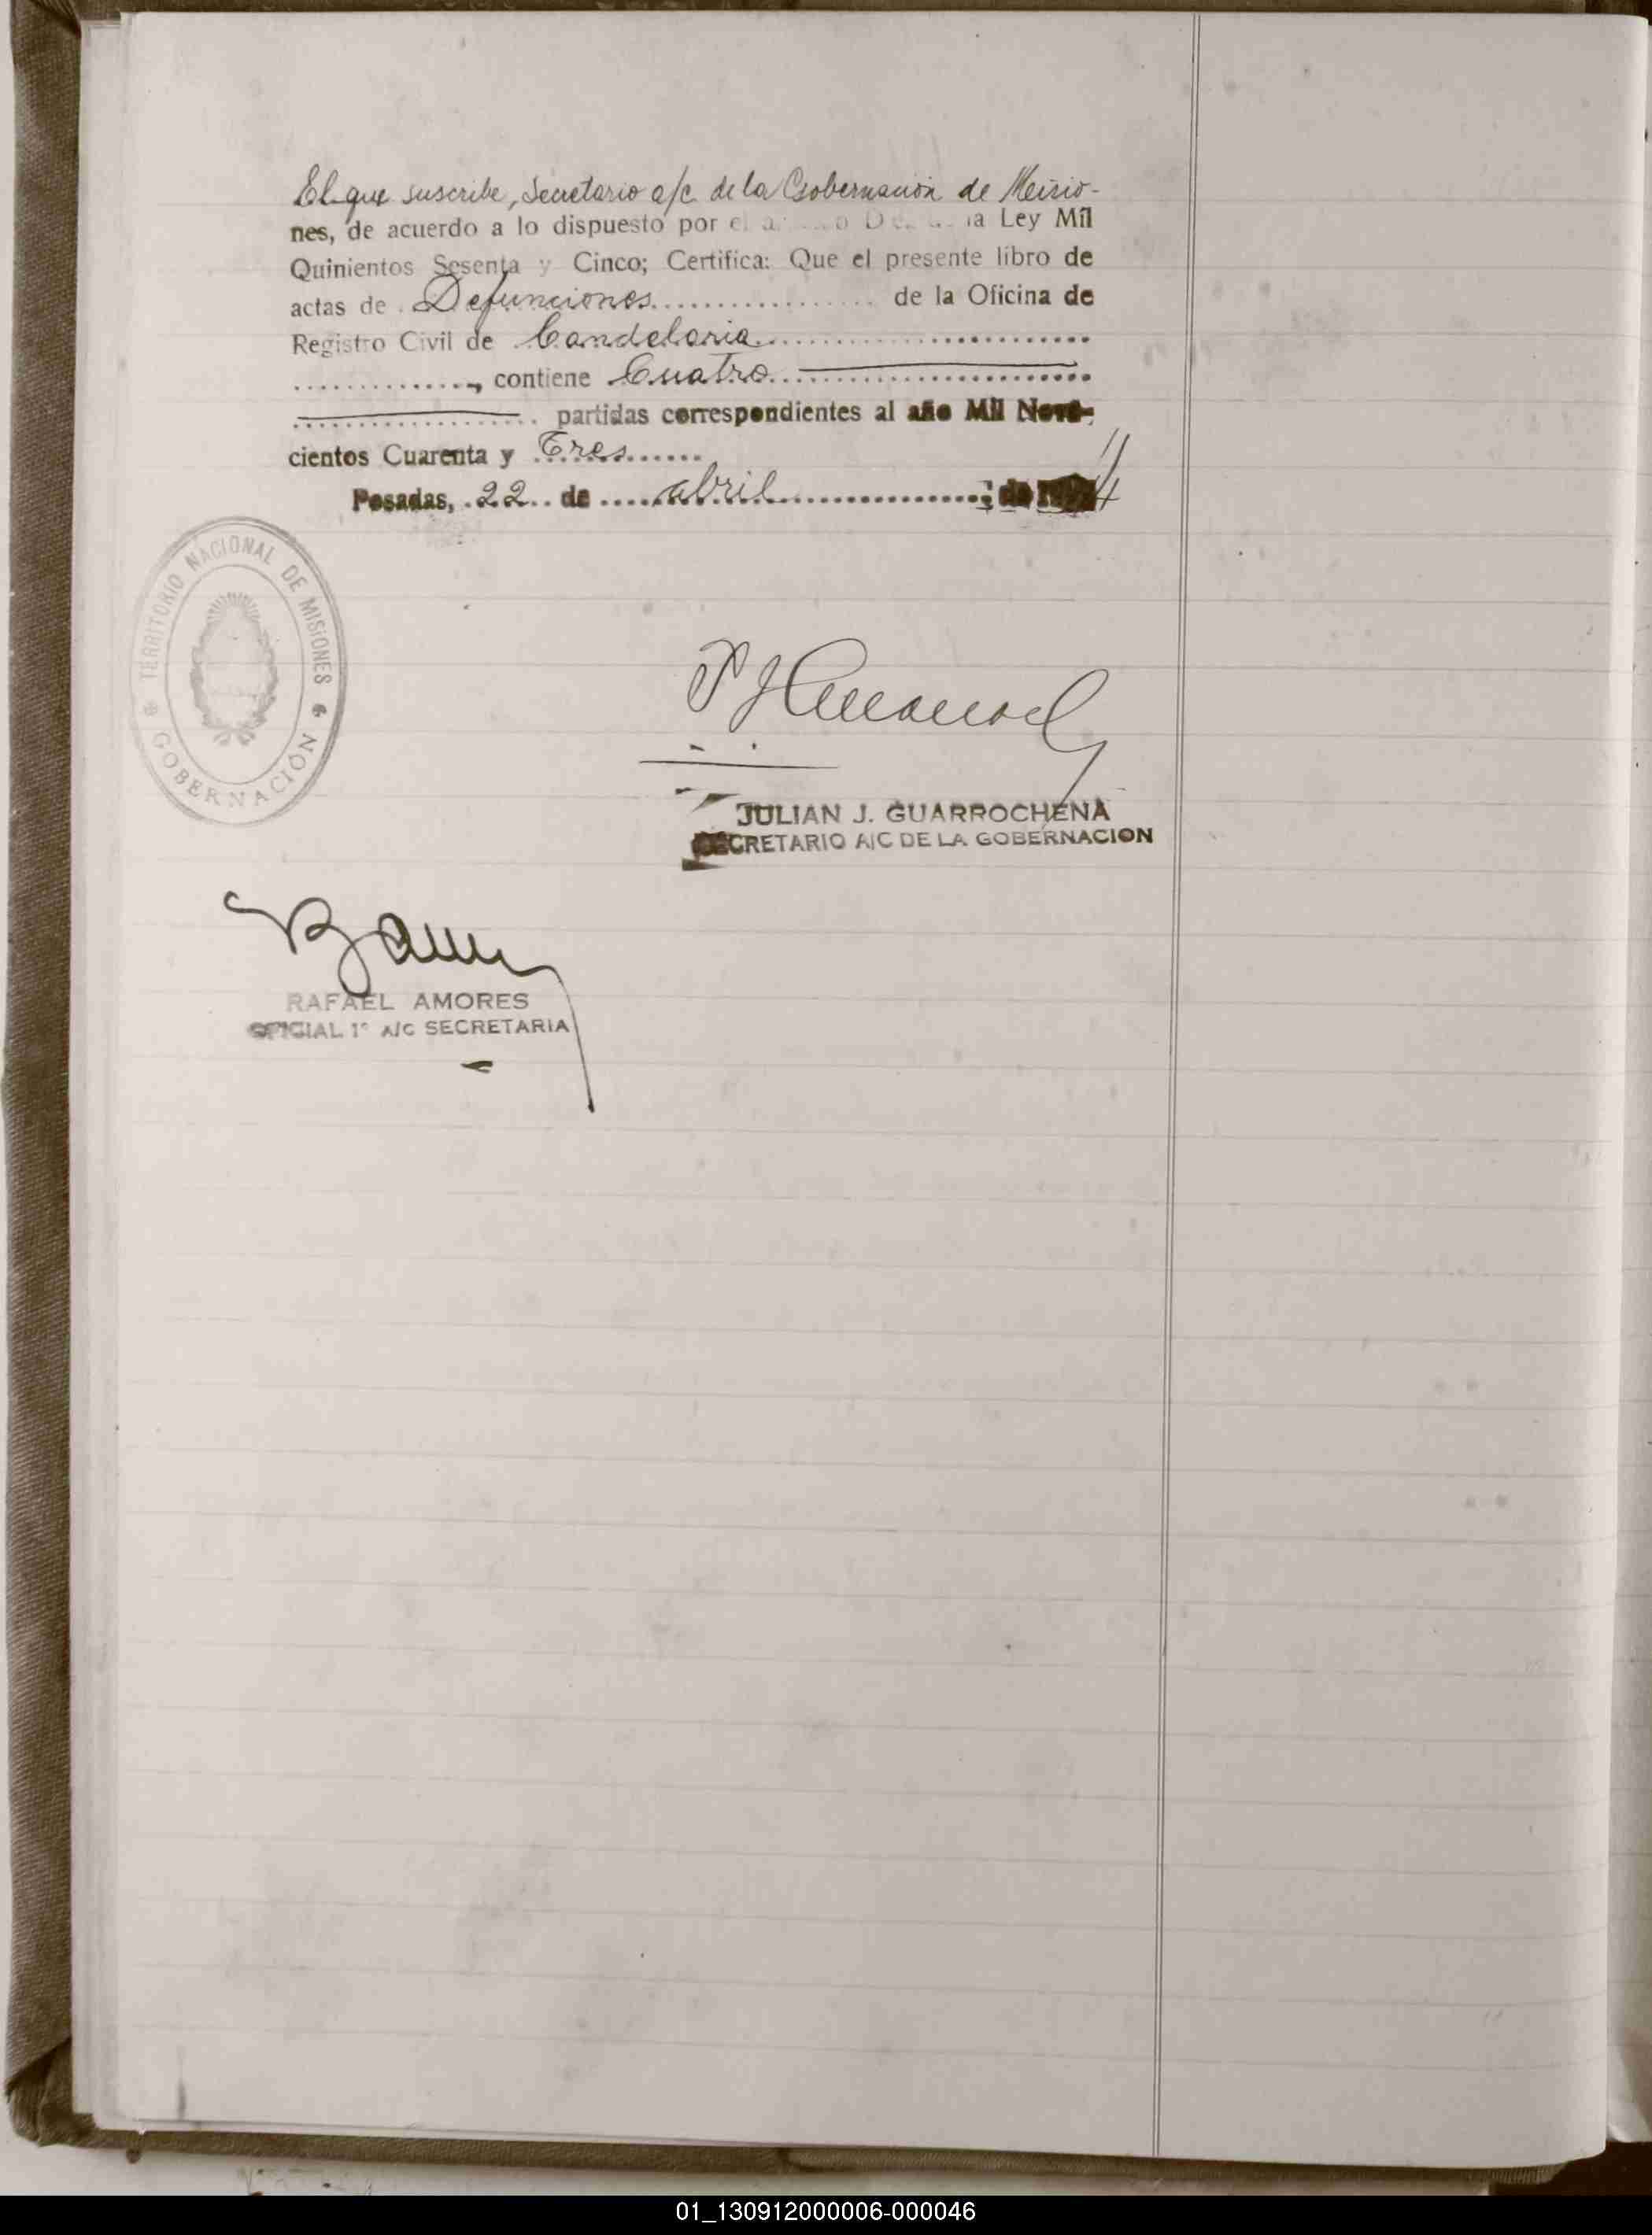 El que suscribe, Secretario a/c de la Gobernación de Misio-
nes, de acuerdo a lo dispuesto por el la Ley Mil
Quinientos Sesenta y Cinco; Certifica: Que el presente libro de
actas de Defunciones de la Oficina de
Registro Civil de Candelaria
, contiene Cuatro
partidas correspondientes al año Mil Nove-
cientos Cuarenta y Tres
Posadas, 22 de abril de
TERRITORIO NACIONAL DE MISIONES
GOBERNACIÓN
JULIAN J. GUARROCHENA
SECRETARIO A/C DE LA GOBERNACION
RAFAEL AMORES
OFICIAL 1° A/C SECRETARIA
01_130912000006-000046